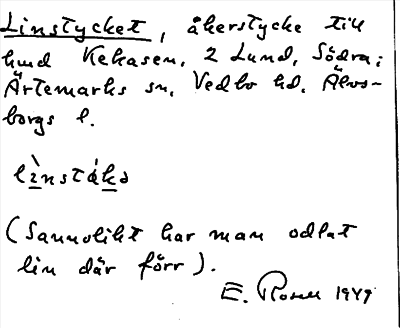 Linstycket, åkerstycke till
hmd Kekasen, 2 Lund, Södra;
Ärtemarks sn, Vedbo hd, Älvs-
borgs l.
lìnstáka
(Sannolikt har man odlat
lin där förr).
E. Rosell 1949